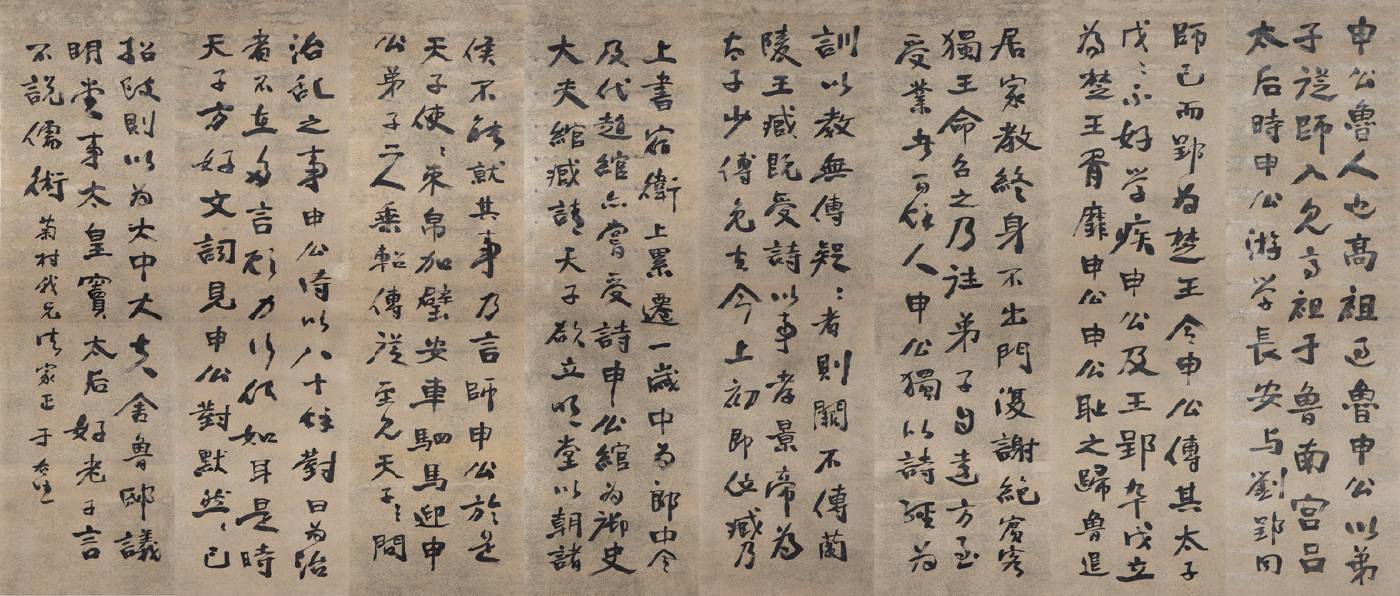 申公魯人也高祖過魯申公以弟
子從師入見高祖于魯南宮呂
太后時申公游学長安与劉郢同
師已而郢为楚王令申公傅其太子
戊〻不好学疾申公及王郢卒戊立
為楚王胥靡申公申公耻之歸魯退
居家教終身不出門復謝絶賓客
獨王命召之乃往弟子自遠方至
受業者百餘人申公獨以詩經为
訓以教無傳疑〻者則闕不傳蘭
陵王臧既受詩以事孝景帝為
太子少傅免去今上初即位臧乃
上書宿衛上累遷一歲中为郎中令
及代趙綰亦嘗受詩申公綰为御史
大夫綰臧請天子欲立明堂以朝諸
侯不能就其事乃言師申公於是
天子使〻束帛加璧安車駟馬迎申
公弟子二人乘軺傳從至見天子〻問
治乱之事申公時以八十餘對曰为治
者不在多言顧力行何如耳是時
天子方好文詞見申公對默然〻已
招致則以为太中大夫舍魯邸議
明堂事太皇竇太后好老子言
不說儒術 菊村我兄法家正 于右任